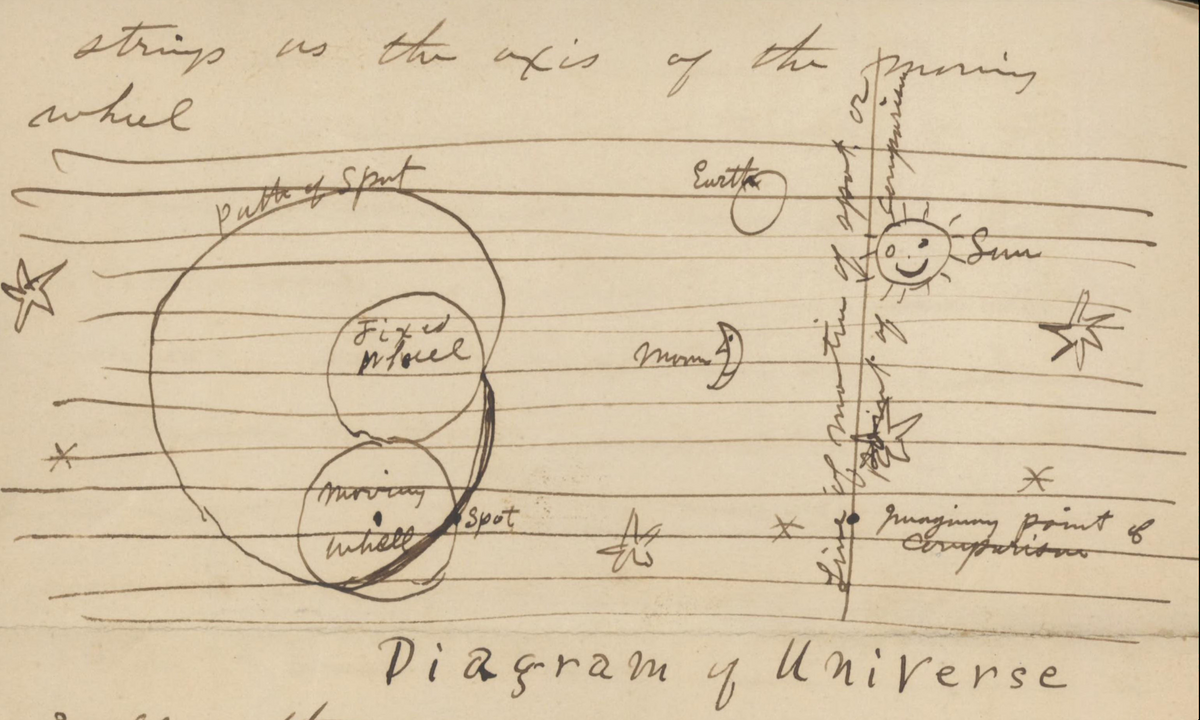 strings as the axis of the moving
wheel
path of Spot
Earth
Sun
Fixed
Wheel
Moon
Line of motion of spot or
Point of Comparison
moving
wheel
Spot
Imaginary point of
Comparison
Diagram of Universe